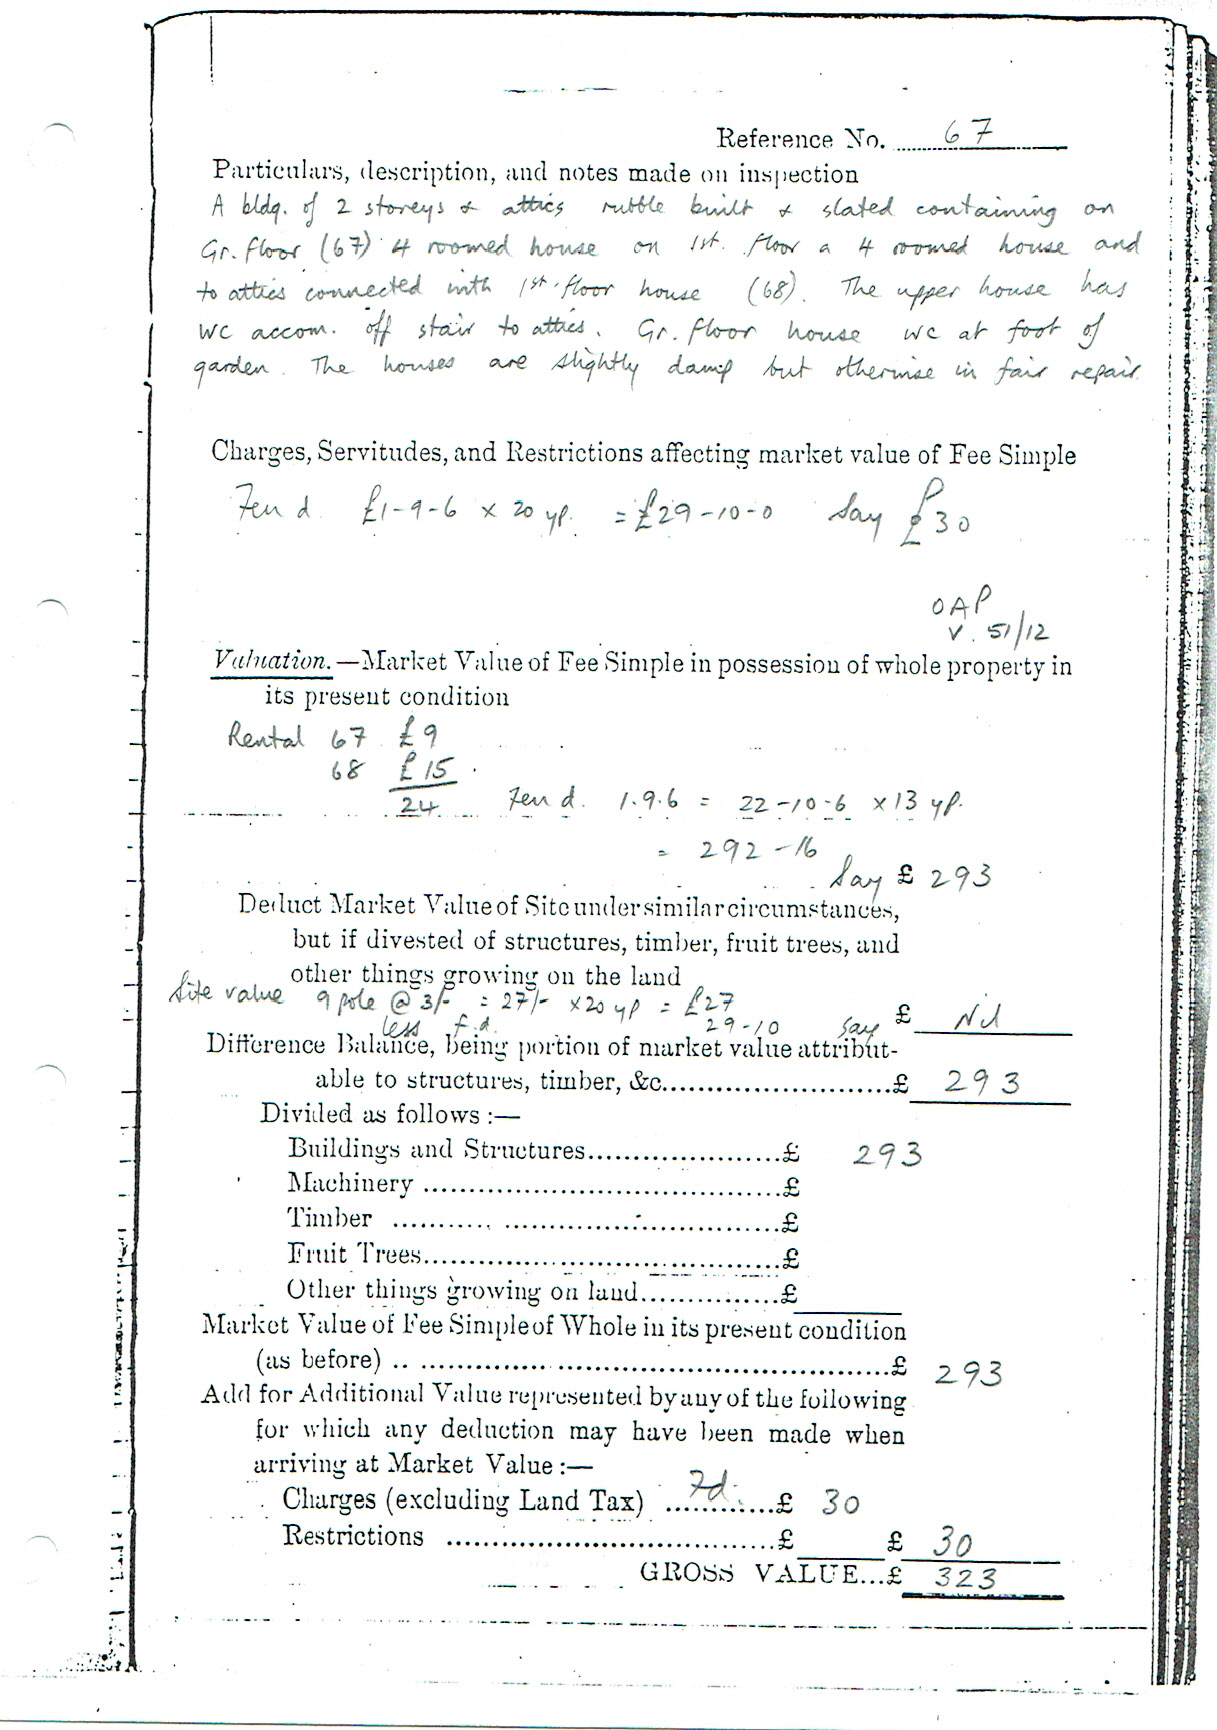 Reference No. 67
Particulars, description, and notes made on inspection
A bldg. of 2 storeys & attics rubble built & slated containing on
Gr. floor (67) 4 roomed house on 1st. floor a 4 roomed house and
to attics connected with 1st. floor house (68). The upper house has
WC accom. off stair to attics. Gr. floor house WC at foot of
garden. The houses are slightly damp but otherwise in fair repair.
Charges, Servitudes, and Restrictions affecting market value of Fee Simple
Feu d. £1-9-6 x 20 yp. = £29-10-0 Say £30
OAP
v. 51/12
Valuation.—Market Value of Fee Simple in possession of whole property in
its present condition
Rental 67 £9
68 £15
24 Feu d. 1.9.6 = 22-10-6 x 13 yp.
= 292-16
Say £ 293
Deduct Market Value of Site under similar circumstances,
but if divested of structures, timber, fruit trees, and
other things growing on the land
Site value 9 pole @ 3/- = 27/- x 20 yp = £27
less f.d. 29-10 say £ Nil
Difference Balance, being portion of market value attribut-
able to structures, timber, &c. £ 293
Divided as follows :—
Buildings and Structures £ 293
Machinery £
Timber £
Fruit Trees £
Other things growing on land £
Market Value of Fee Simple of Whole in its present condition
(as before) £ 293
Add for Additional Value represented by any of the following
for which any deduction may have been made when
arriving at Market Value :—
Charges (excluding Land Tax) Fd. £ 30
Restrictions £ £ 30
GROSS VALUE...£ 323